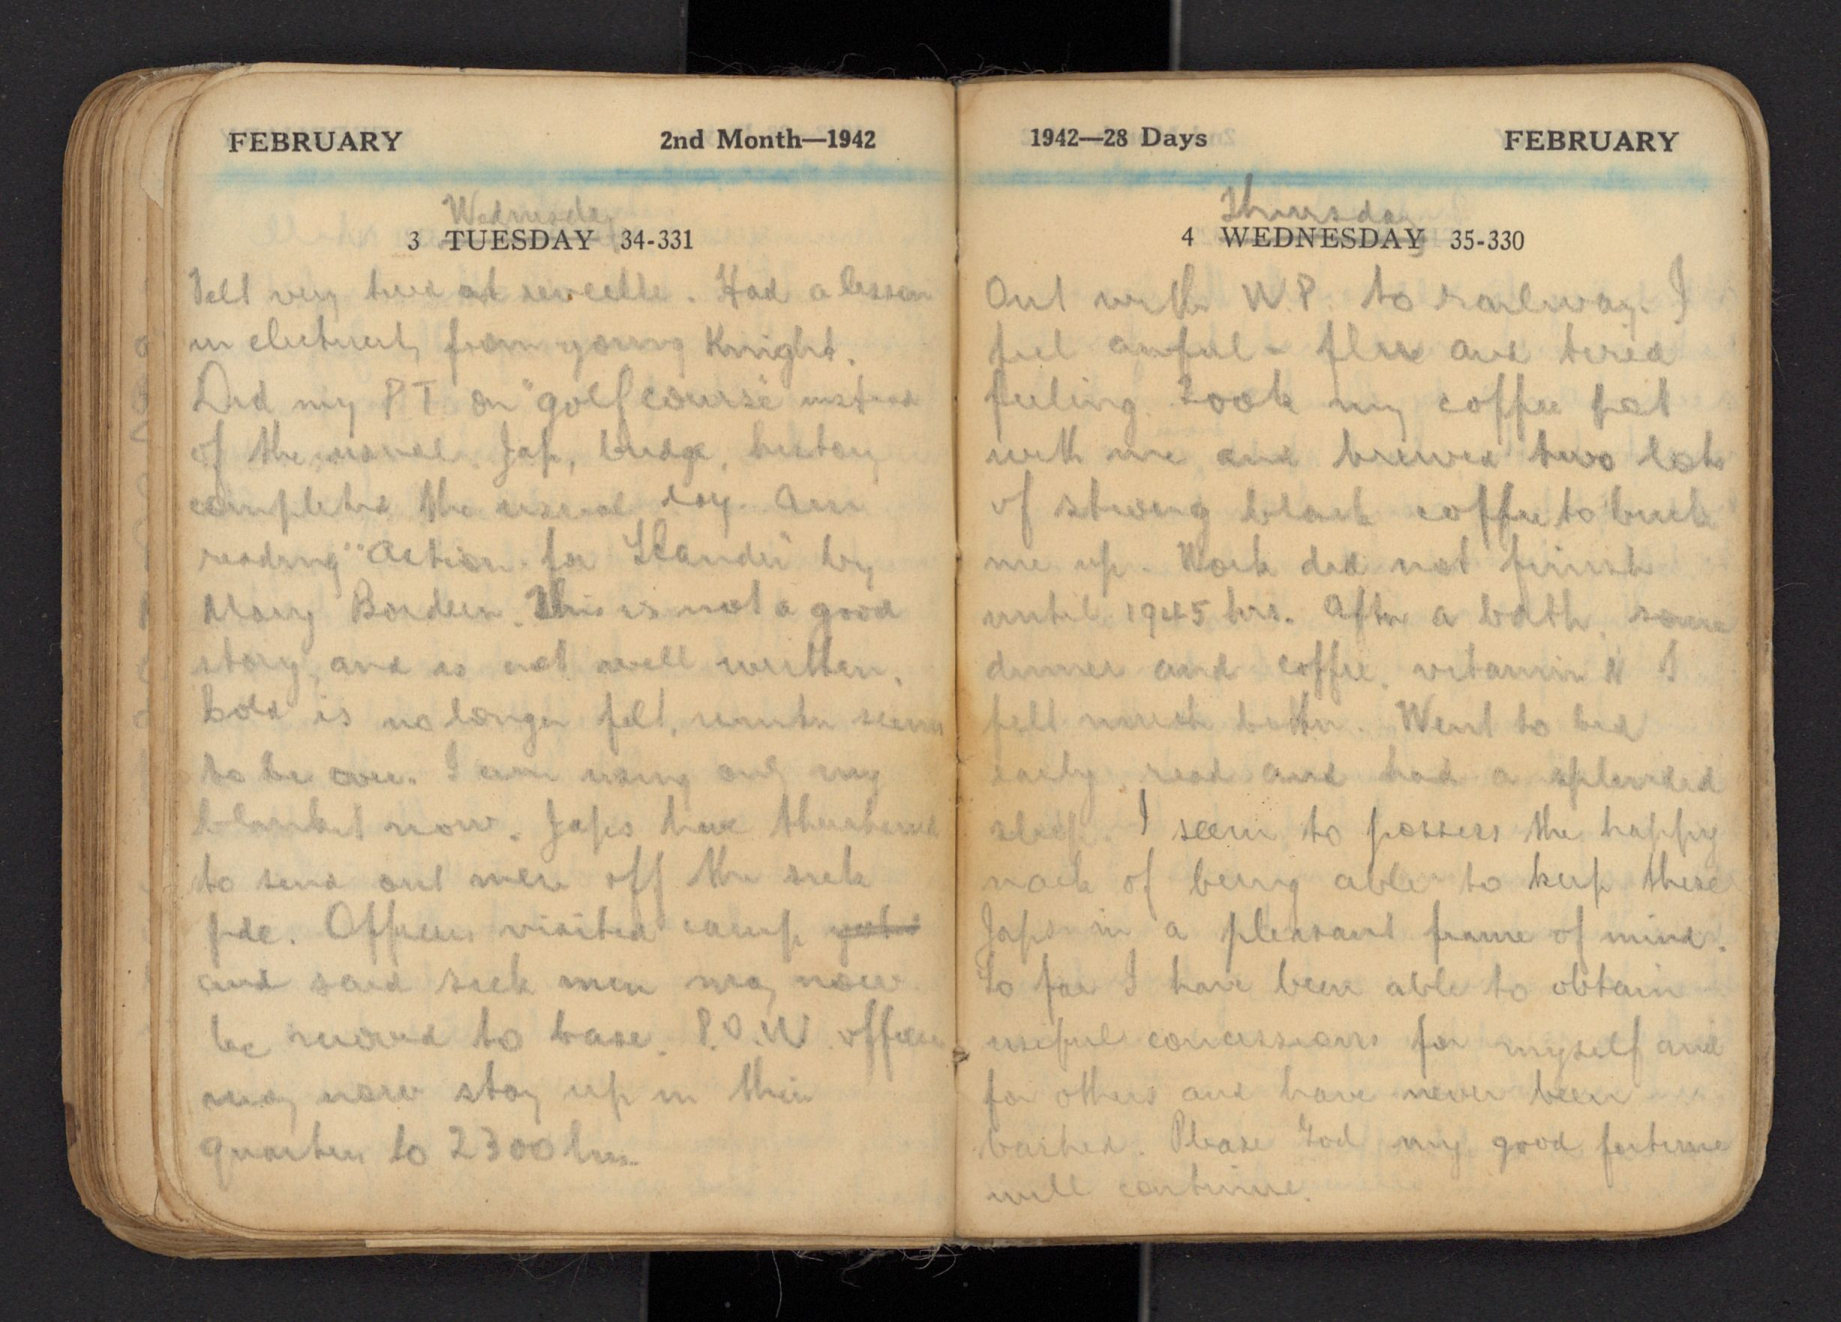 FEBRUARY 2nd Month—1942
Wednesday
3 TUESDAY 34-331
Felt very tired at reveille. Had a lesson
in electricity from young Knight.
Did my P T on "golf course" instead
of the usual. Jap, bridge, history,
completed the usual day. Am
reading "Action for Slander" by
Mary Borden. This is not a good
story, and is not well written.
Cold is no longer felt, winter seems
to be over. I am using only my
blanket now. Japs have threatened
to send out men off the sick
pde. Officers visited camp
and said sick men may now
be moved to base. P.O.W. officers
may now stay up in their
quarters to 2300 hrs.
1942—28 Days FEBRUARY
Thursday
4 WEDNESDAY 35-330
Out with W.P. to railway. I
feel awful - flu and tired
feeling. Took my coffee pot
with me and brewed two lots
of strong black coffee to buck
me up. Work did not finish
until 1945 hrs. After a bath, some
dinner and coffee, vitamin I
felt much better. Went to bed
early, read and had a splendid
sleep. I seem to possess the happy
nack of being able to keep these
Japs in a pleasant frame of mind.
So far I have been able to obtain
useful concessions for myself and
for others and have never been
bashed. Please God my good fortune
will continue.